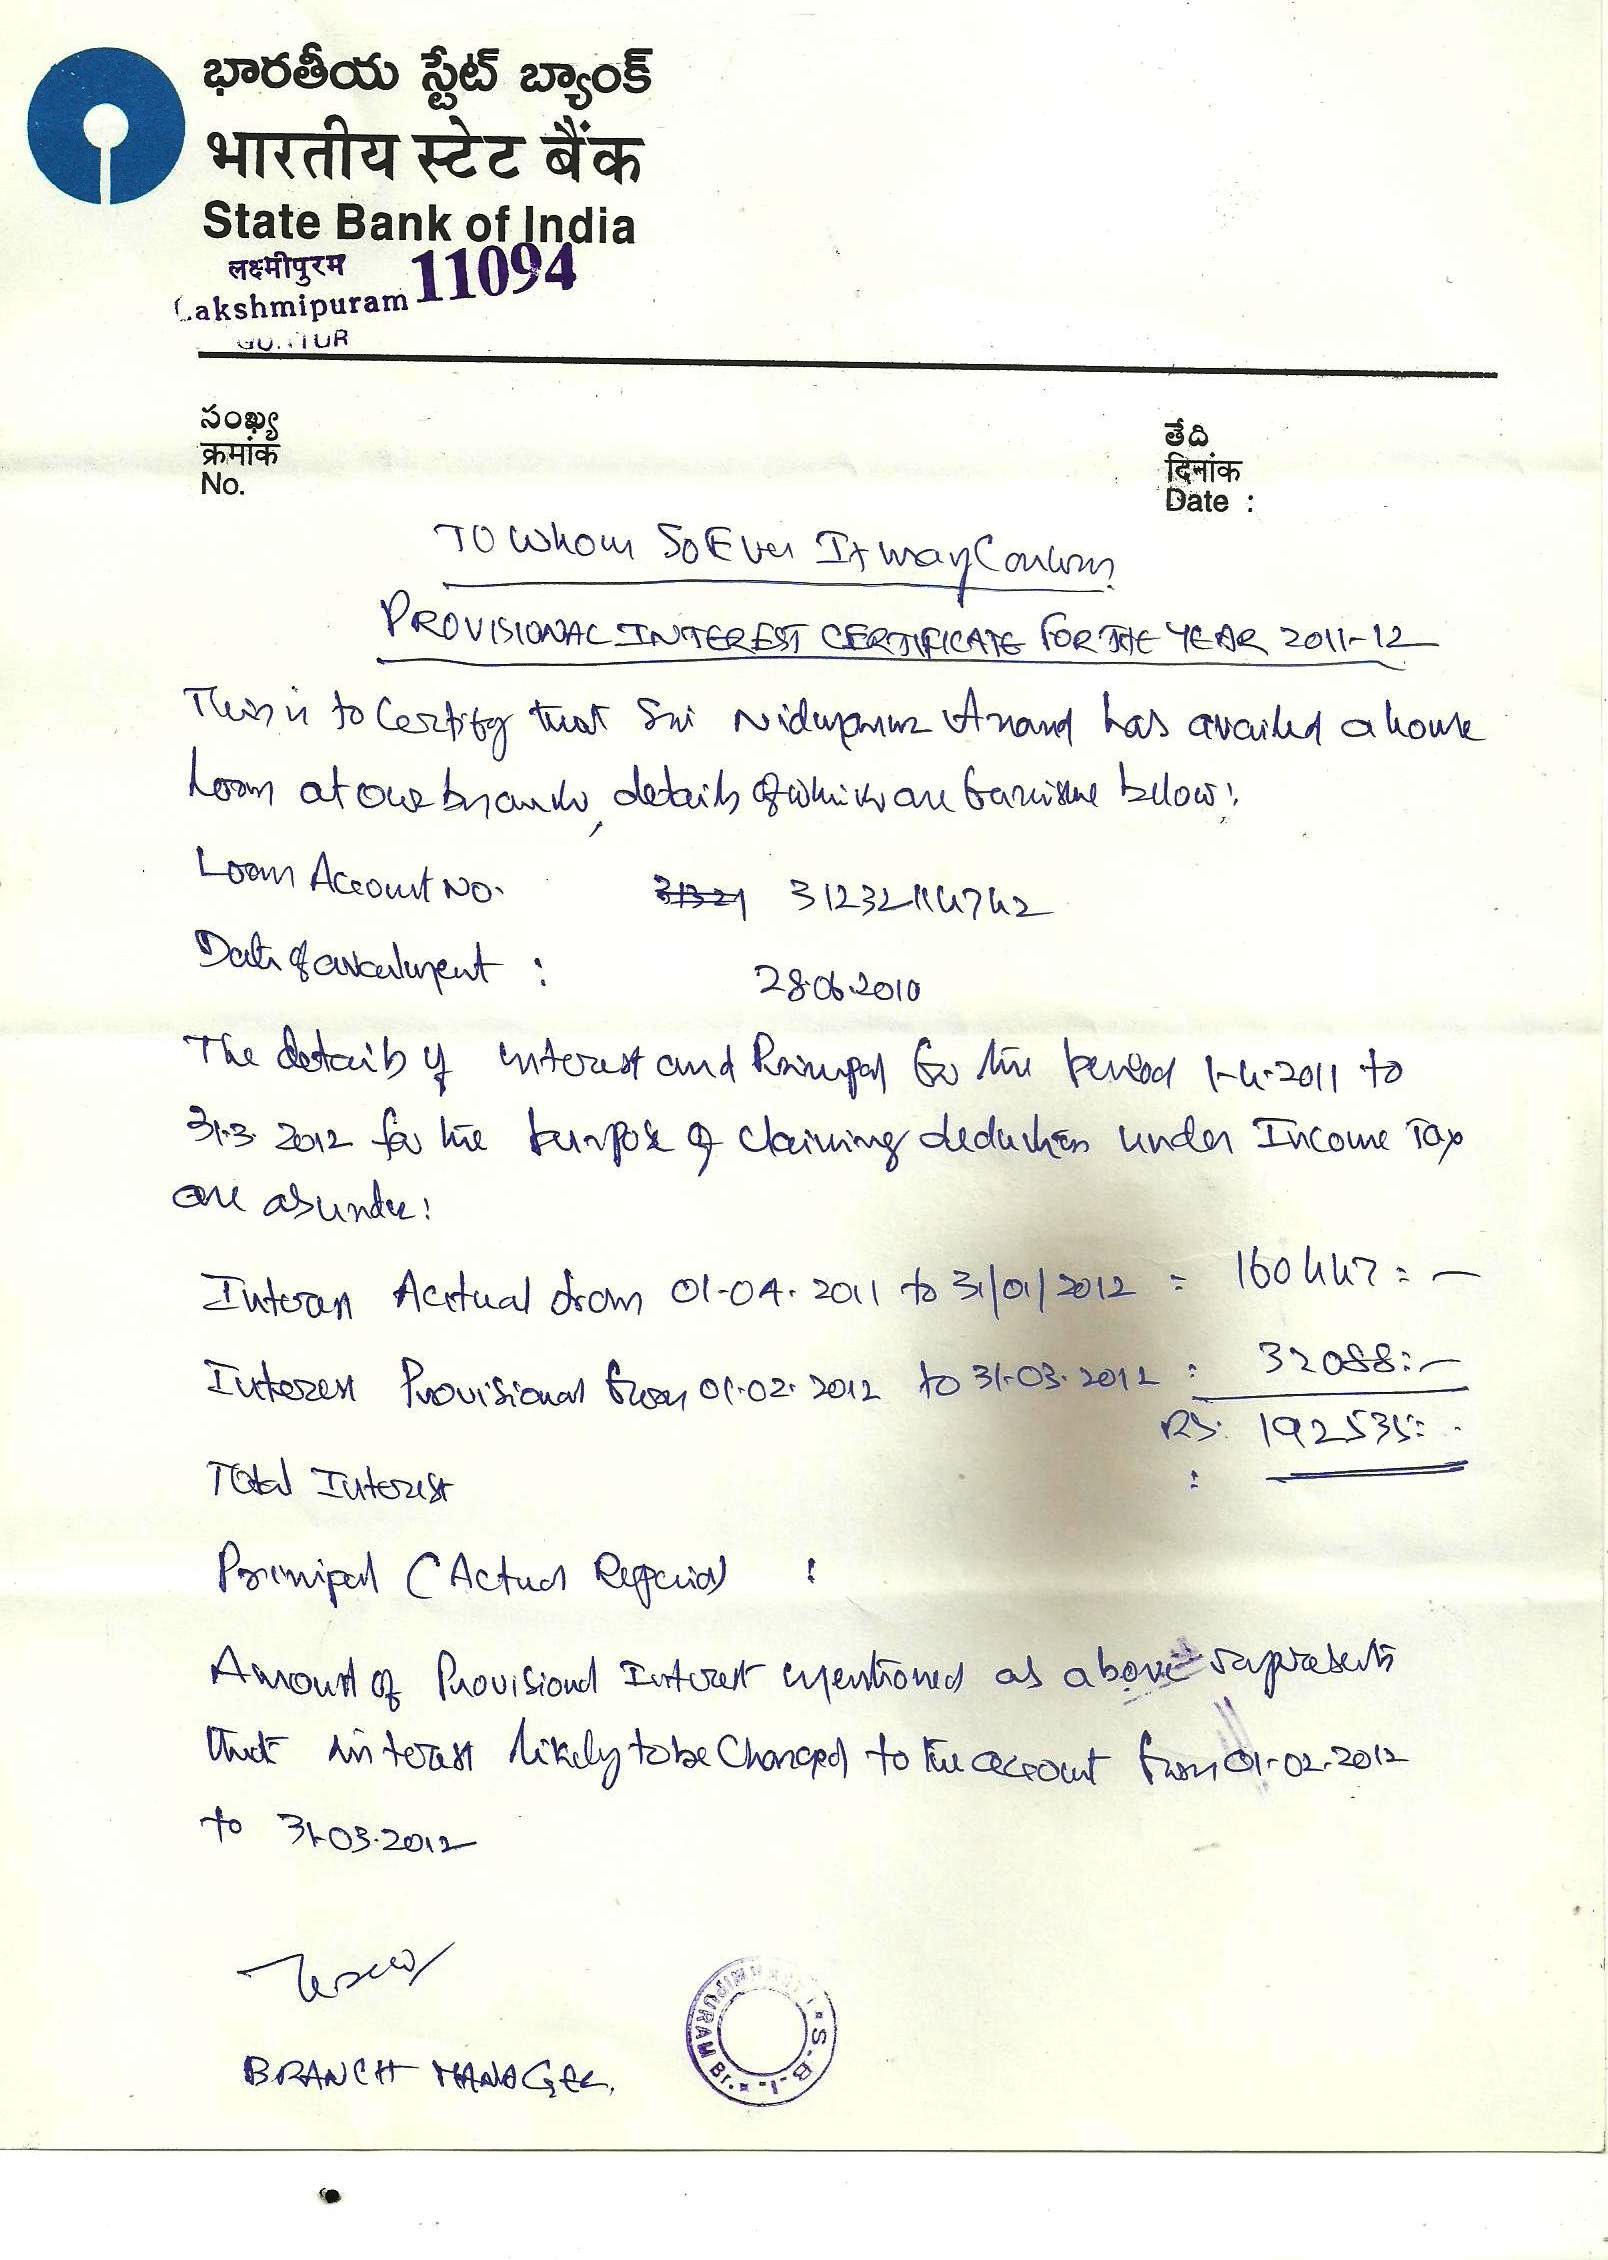 భారతీయ స్టేట్ బ్యాంక్
भारतीय स्टेट बैंक
State Bank of India
लक्ष्मीपुरम 11094
Lakshmipuram
GUNTUR
సంఖ్య
क्रमांक
No.
తేది
दिनांक
Date :
TO Whom SoEver It may Concern
PROVISIONAL INTEREST CERTIFICATE FOR THE YEAR 2011-12
This is to Certify that Sri Anand has availed a house
Loan at our branch, details of which are furnishe below:
Loan Account No. 31321 31232114742
Date of availment : 28.06.2010
The details of interest and Principal for the period 1-4-2011 to
31.3.2012 for the purpose of claiming deduction under Income Tax
are as under:
Interest Acctual from 01-04.2011 to 31/01/2012 = 160447=—
Interest Provisional from 01.02.2012 to 31-03.2012 : 32088=—
RS. 192535=
Total Interest :
Principal (Actual Repaid) :
Amount of Provisional Interest mentioned as above represents
that interest likely to be Charged to the account from 01-02.2012
to 31-03.2012
BRANCH MANAGER.
S.B.I. * PURAM Br. *